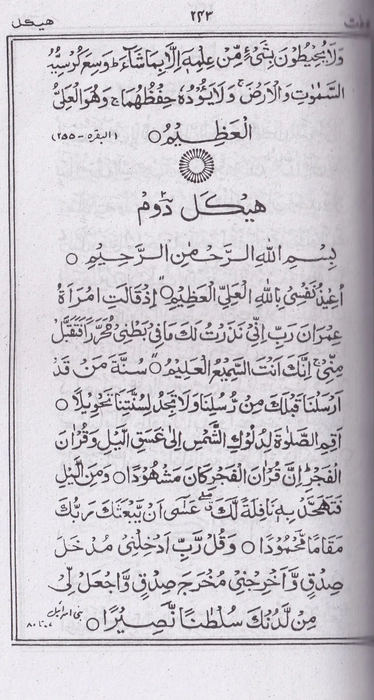 هيكل ٢٤٣
وَلَا يُحِيطُونَ بِشَيْءٍ مِّنْ عِلْمِهٖٓ اِلَّا بِمَا شَآءَ ۚ وَسِعَ كُرْسِيُّهُ
السَّمٰوٰتِ وَالْاَرْضَ ۚ وَلَا يَؤُدُهٗ حِفْظُهُمَا ۚ وَهُوَ الْعَلِيُّ
الْعَظِيْمُ ○ (البقره - ٢٥٥)
هيكل دوم
بِسْمِ اللهِ الرَّحْمٰنِ الرَّحِيْمِ ○
اُعِيْذُ نَفْسِيْ بِاللهِ الْعَلِيِّ الْعَظِيْمِ ○ اِذْ قَالَتِ امْرَاَةُ
عِمْرَانَ رَبِّ اِنِّيْ نَذَرْتُ لَكَ مَا فِيْ بَطْنِيْ مُحَرَّرًا فَتَقَبَّلْ
مِنِّيْ ۚ اِنَّكَ اَنْتَ السَّمِيْعُ الْعَلِيْمُ ○ سُنَّةَ مَنْ قَدْ
اَرْسَلْنَا قَبْلَكَ مِنْ رُّسُلِنَا وَلَا تَجِدُ لِسُنَّتِنَا تَحْوِيْلًا ○
اَقِمِ الصَّلٰوةَ لِدُلُوْكِ الشَّمْسِ اِلٰى غَسَقِ الَّيْلِ وَقُرْاٰنَ
الْفَجْرِ ۭ اِنَّ قُرْاٰنَ الْفَجْرِ كَانَ مَشْهُوْدًا ○ وَمِنَ الَّيْلِ
فَتَهَجَّدْ بِهٖ نَافِلَةً لَّكَ ۖ عَسٰٓى اَنْ يَّبْعَثَكَ رَبُّكَ
مَقَامًا مَّحْمُوْدًا ○ وَقُلْ رَّبِّ اَدْخِلْنِيْ مُدْخَلَ
صِدْقٍ وَّاَخْرِجْنِيْ مُخْرَجَ صِدْقٍ وَّاجْعَلْ لِّيْ
مِنْ لَّدُنْكَ سُلْطٰنًا نَّصِيْرًا ○ بنی اسرائیل ٧٧ تا ٨٠